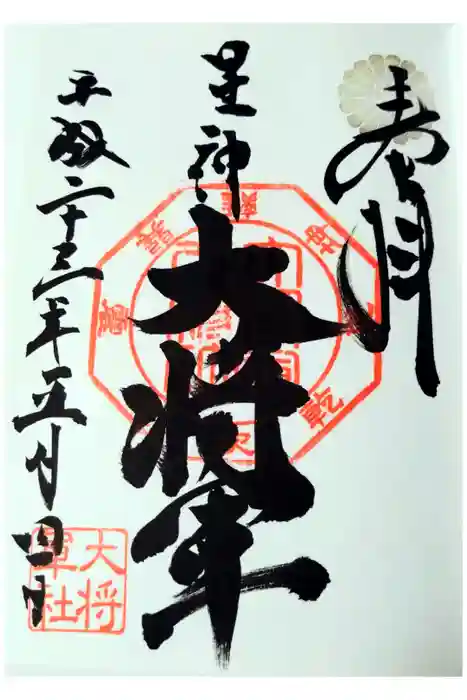 奉拝
星神
大将軍
平成二十三年五月四日
大将
軍社
乾